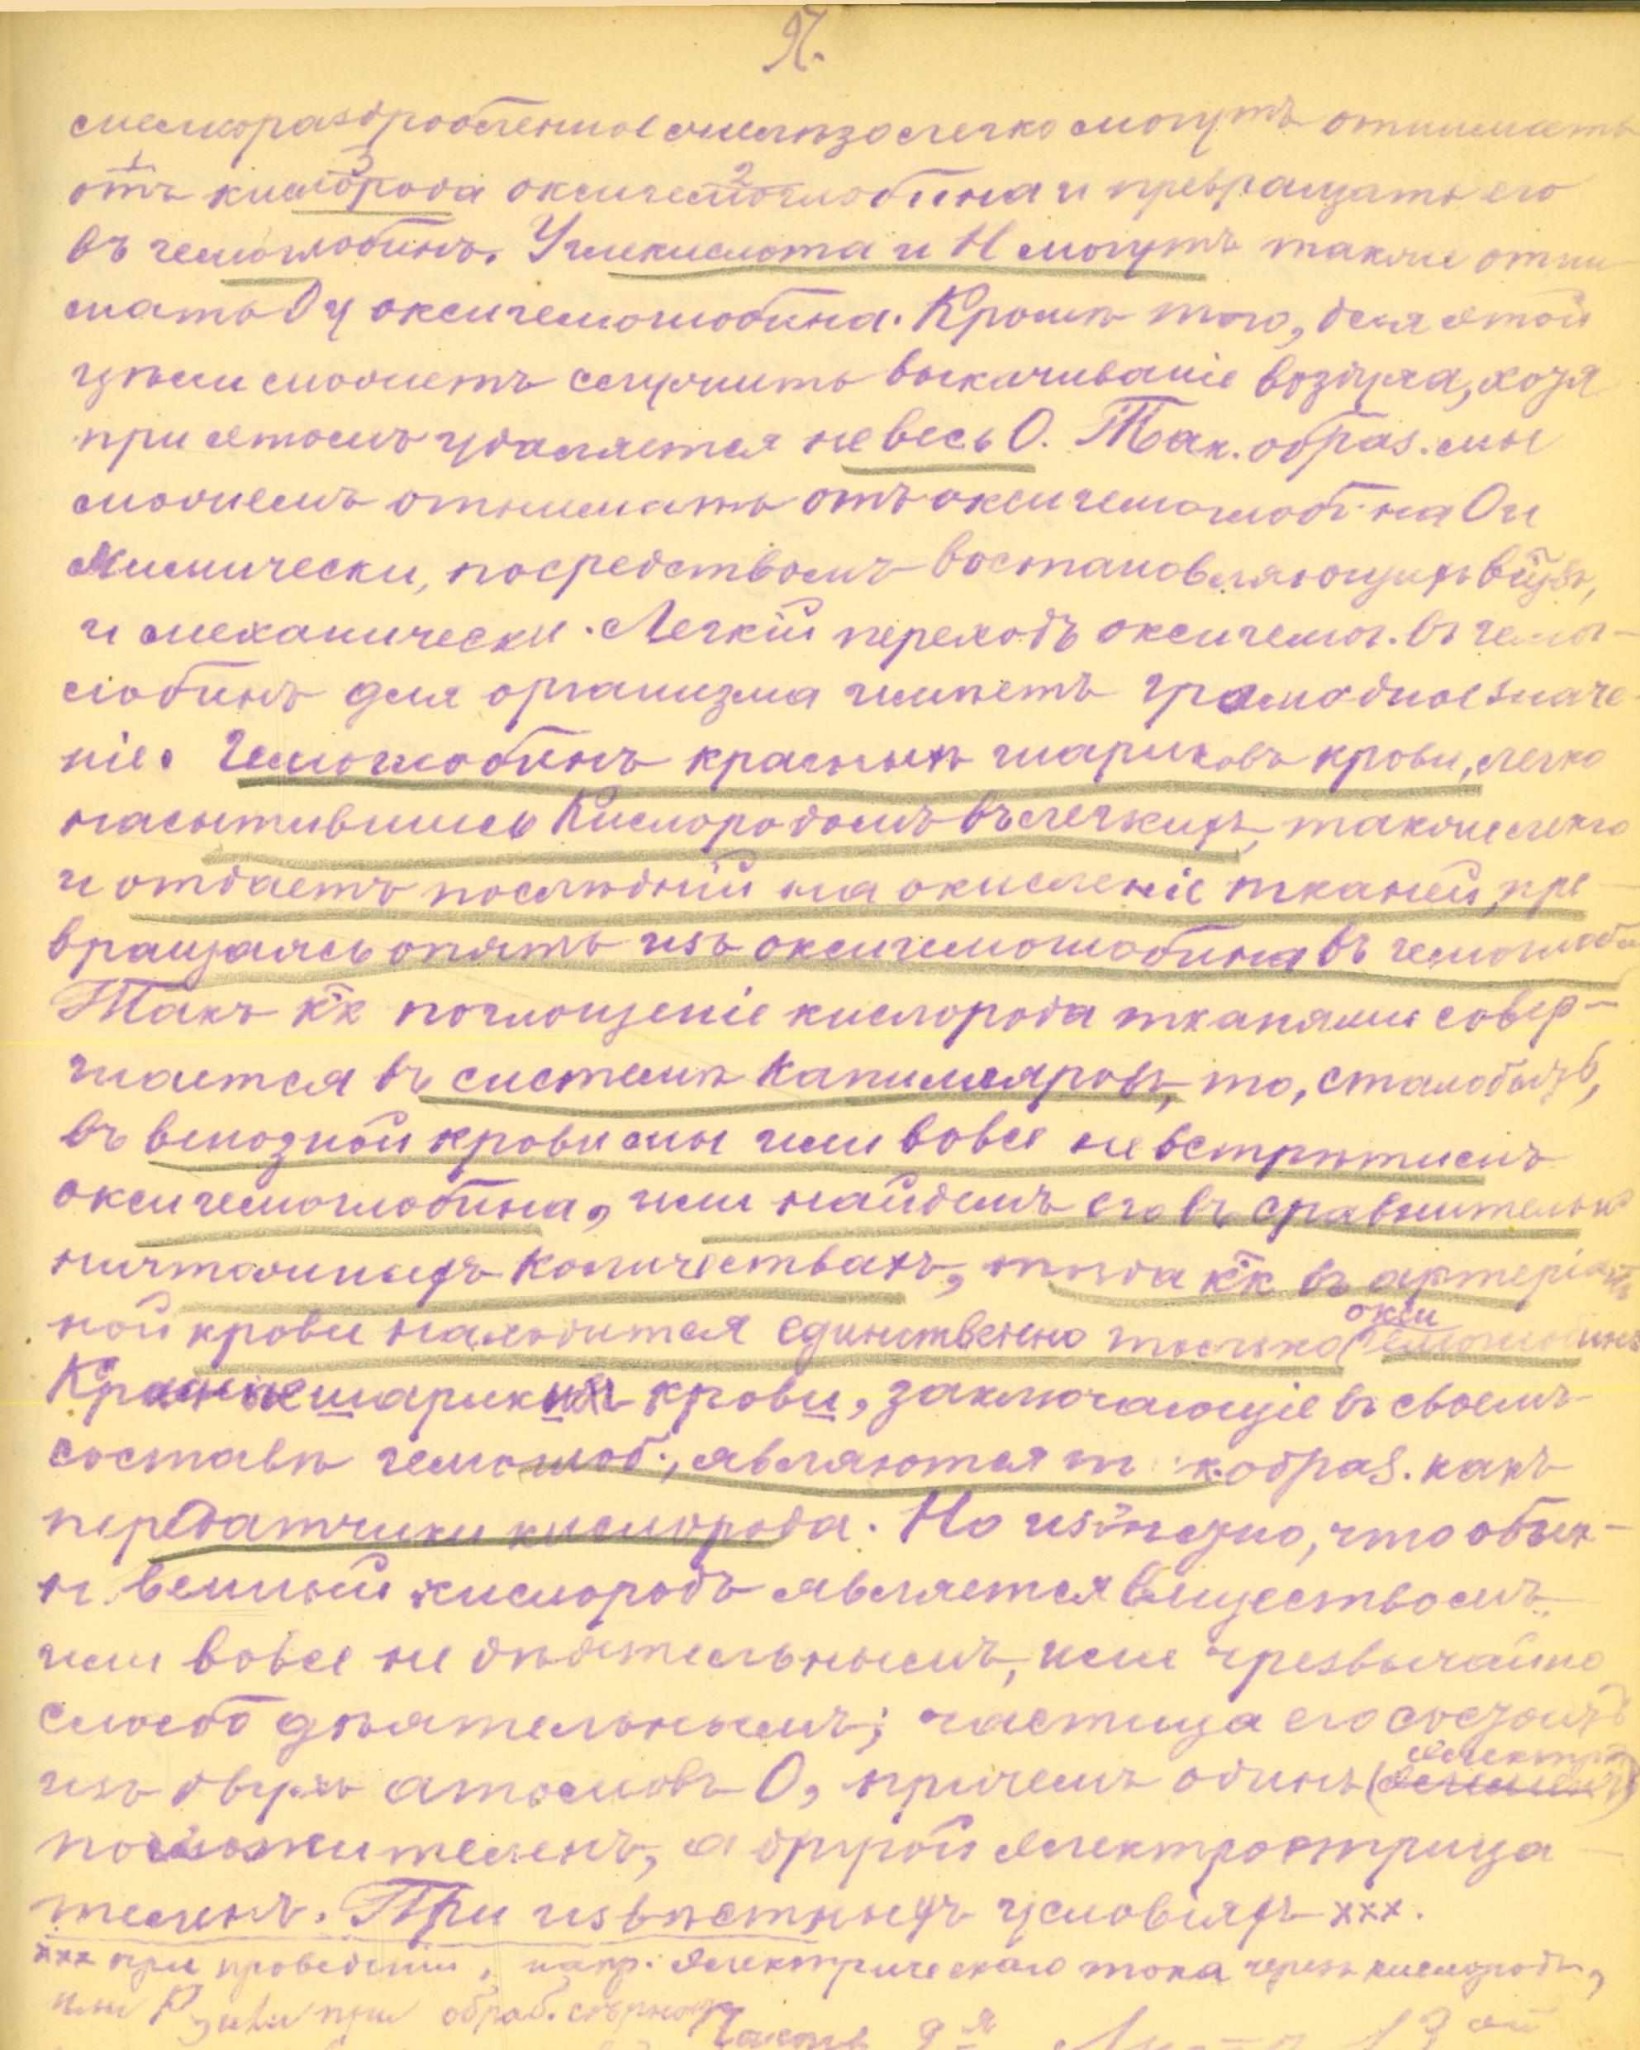 97.
мелкораздробленное желѣзо легко могутъ отнимать
отъ кислорода оксигемоглобина и превращать его
въ гемоглобинъ. Углекислота и Н могутъ также отни-
мать О у оксигемоглобина. Кромѣ того, для этой
цѣли можетъ служить выкачиваніе воздуха, хотя
при этомъ удаляется не весь О. Так. образ. мы
можемъ отнимать отъ оксигемоглобина О и
химически, посредствомъ востановляющихъ вщвъ,
и механически. Легкій переходъ оксигемог. въ гемо-
глобинъ для организма имѣетъ громадное значе-
ніе. Гемоглобинъ красныхъ шариковъ крови, легко
насытившись кислородомъ въ легкихъ, также легко
и отдаетъ послѣдній на окисленіе тканей, пре-
вращаясь опять изъ оксигемоглобина въ гемоглоби
Такъ кк поглощеніе кислорода тканями совер-
шается въ системѣ капилляровъ, то, стало быть,
въ венозной крови мы или вовсе не встрѣтимъ
оксигемоглобина, или найдемъ его въ сравнительно
ничтожныхъ количествахъ, тогда кк въ артеріаль
ной крови находится единственно только (окси гемоглобинъ
Красные шарики крови, заключающіе въ своемъ
составѣ гемоглоб., являются т к. образ. какъ
передатчики кислорода. Но извѣстно, что обык-
н венный кислородъ является веществомъ
или вовсе не дѣятельнымъ, или чрезвычайно
слабо дѣятельнымъ; частица его состоитъ
изъ двухъ атомовъ О, причемъ одинъ (электро
положителенъ, а другой электроотрица-
теленъ. При извѣстныхъ условіяхъ ххх.
ххх при проведеніи, напр. электрическаго тока черезъ кислородъ,
или при обраб. сѣрной
Часть 9я Листъ 13ой